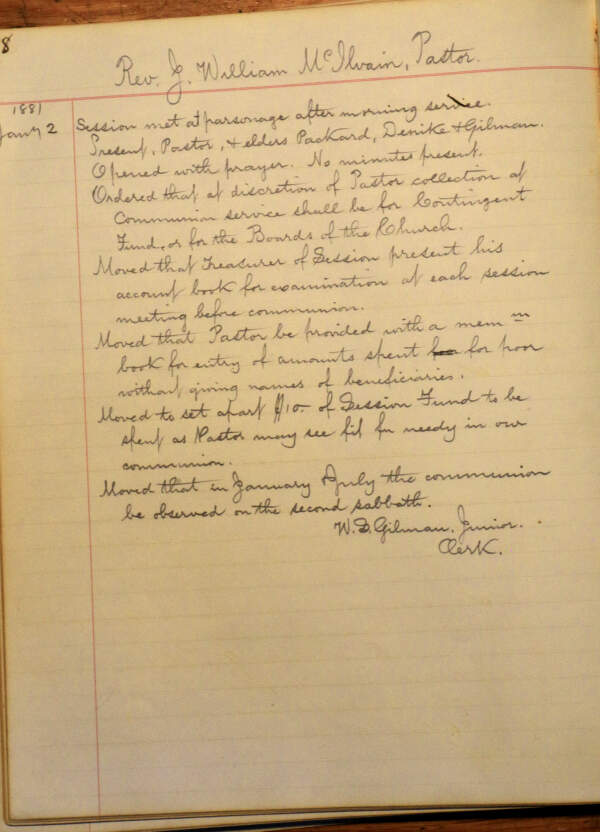 8
Rev. J. William McIlvain, Pastor.
1881
Jany 2 Session met at parsonage after morning service.
Present, Pastor, & elders Packard, Denike & Gilman.
Opened with prayer. No minutes present.
Ordered that at discretion of Pastor collection at
Communion service shall be for Contingent
Fund, or for the Boards of the Church.
Moved that Treasurer of Session present his
account book for examination at each session
meeting before communion.
Moved that Pastor be provided with a mem m
book for entry of amounts spent for poor
without giving names of beneficiaries.
Moved to set apart $10. of Session Fund to be
spent as Pastor may see fit for needy in our
communion.
Moved that in January & July the communion
be observed on the second sabbath.
W. D. Gilman, Junior.
Clerk.